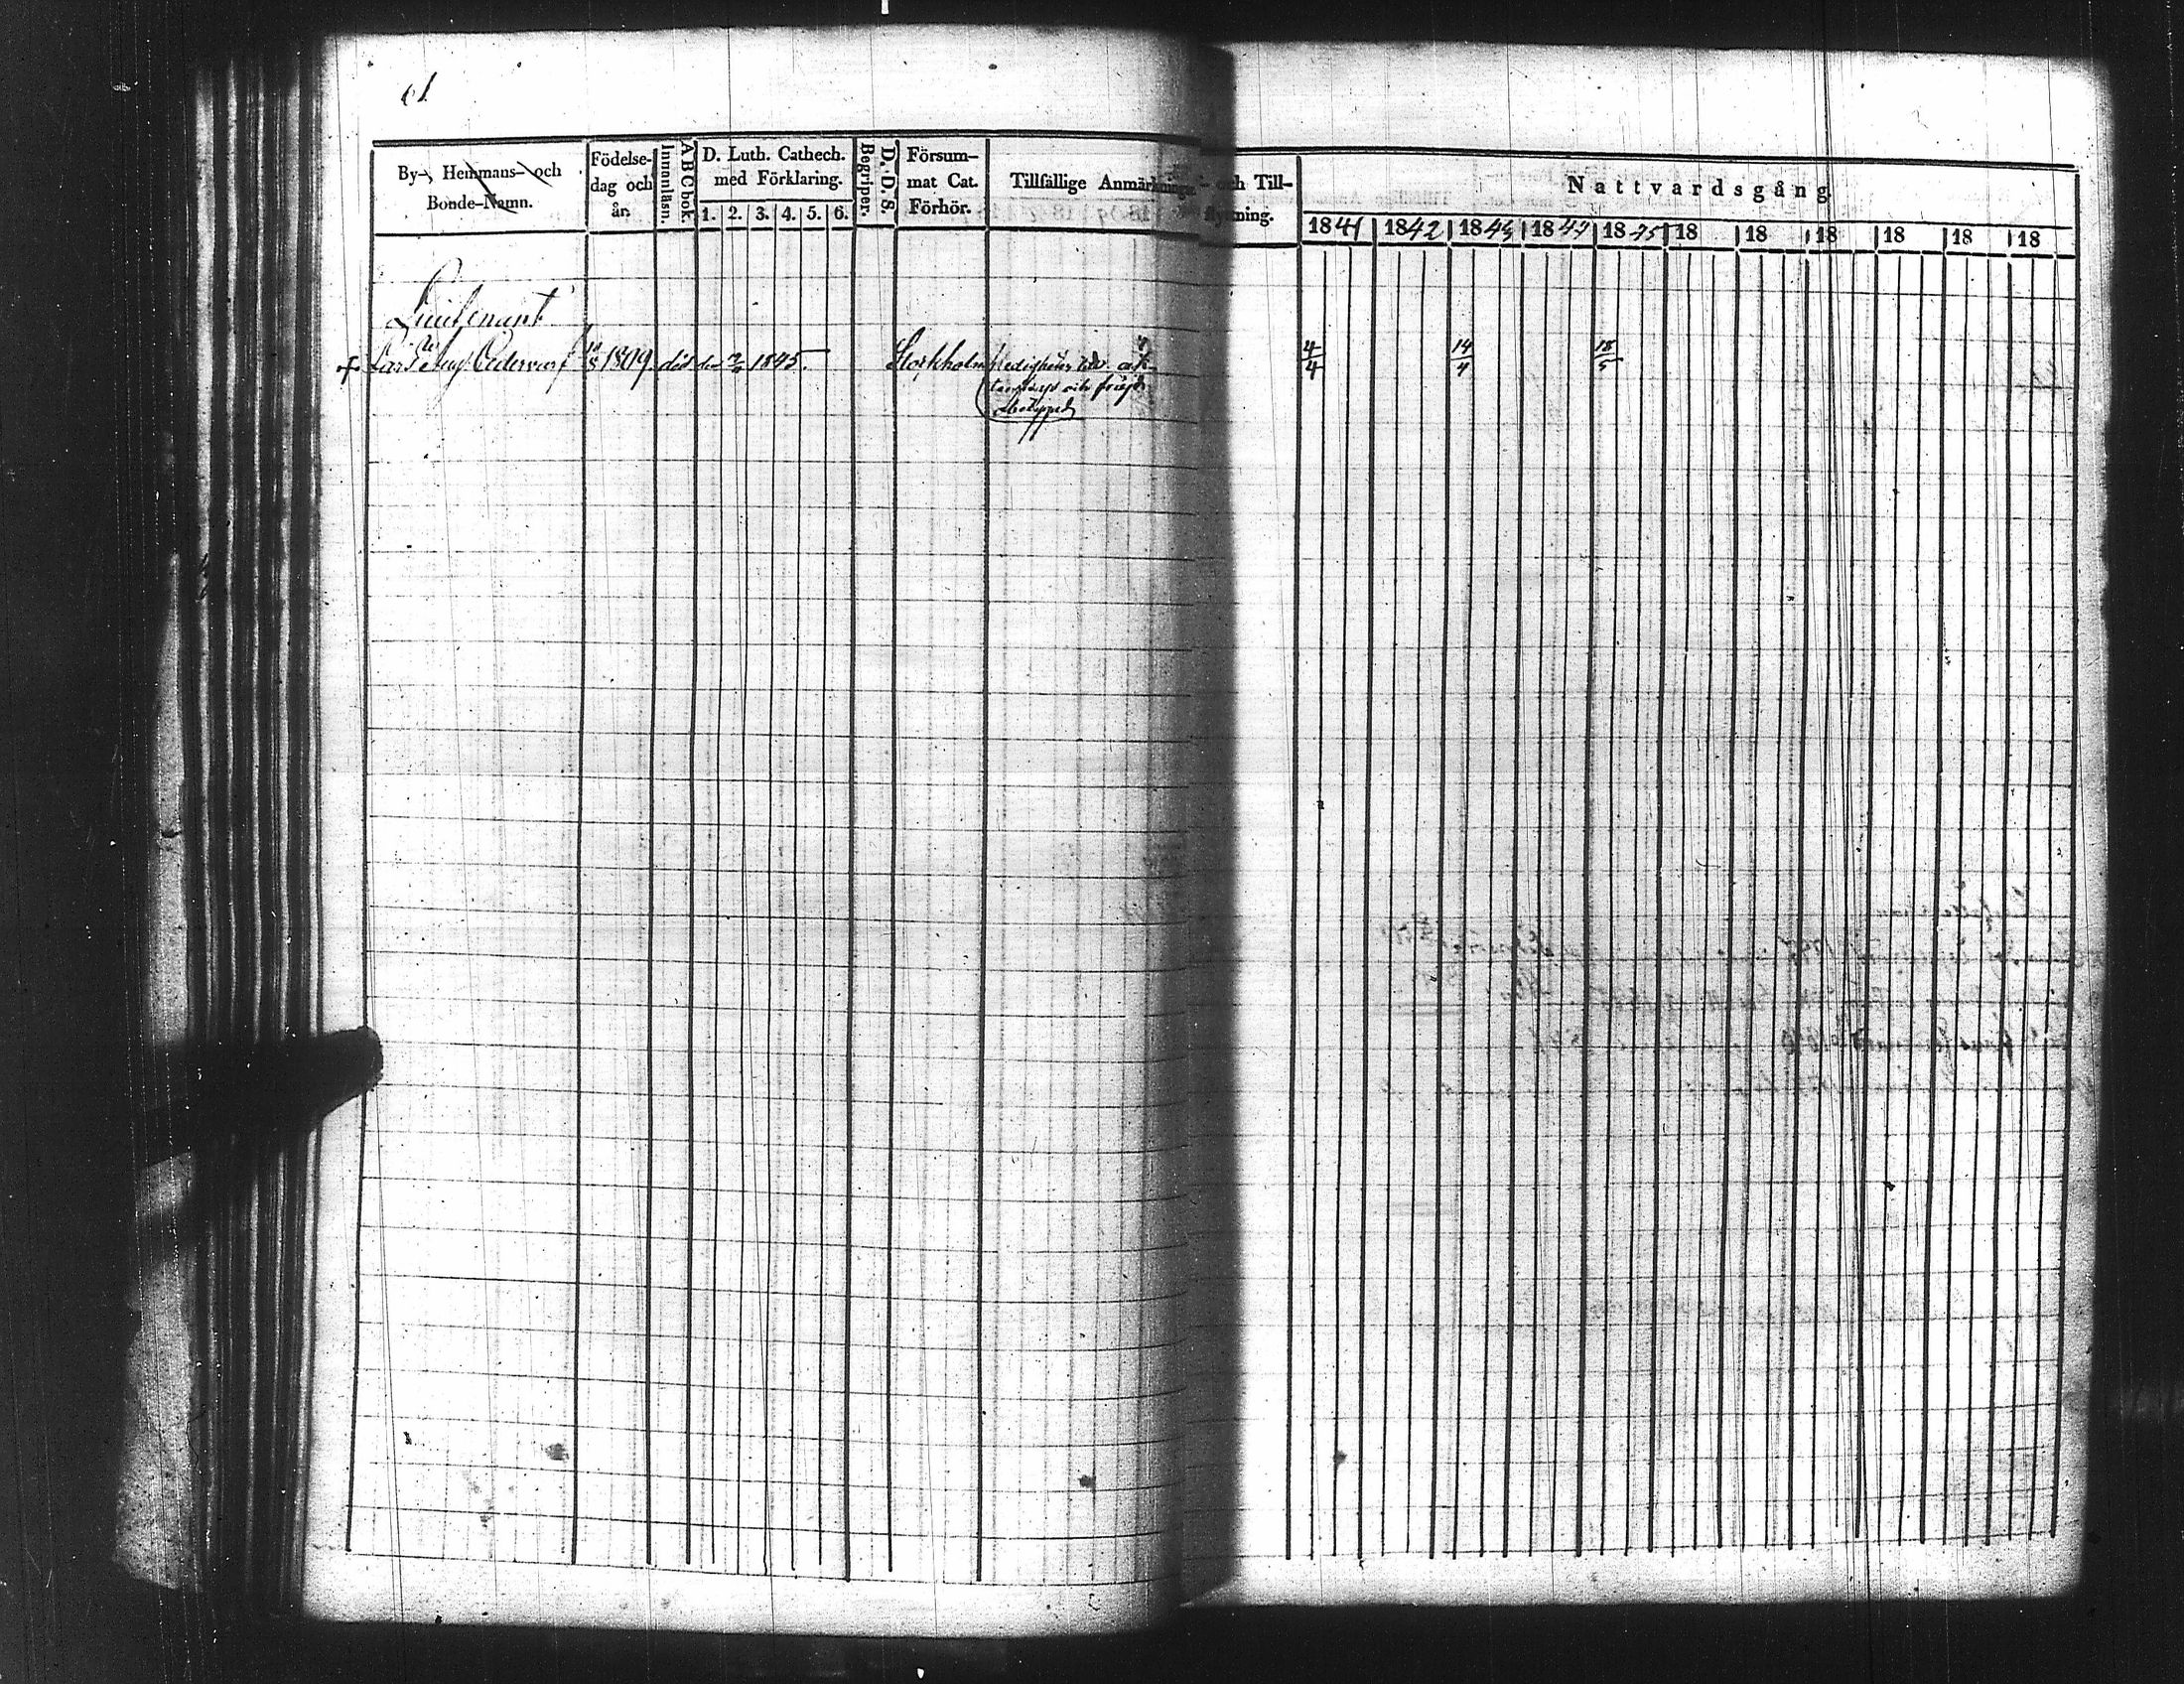 61
By-, Hemmans- och
Bonde-Namn.
Födelse-
dag och
år.
Innanläsn.
A B C bok.
D. Luth. Cathech.
med Förklaring.
1. 2. 3. 4. 5. 6.
Begriper.
D. D. S.
Försum-
mat Cat.
Förhör.
Tillfällige Anmärkninga
- och Till-
flyttning.
Nattvardsgång
1841 1842 1843 1844 1845 18 18 18 18 18 18
Lieutenant
+ Lars Aug. 1809. död den 1845. Stockholm Ledighets 4/4 14/4 18/5
och frejde
betyged